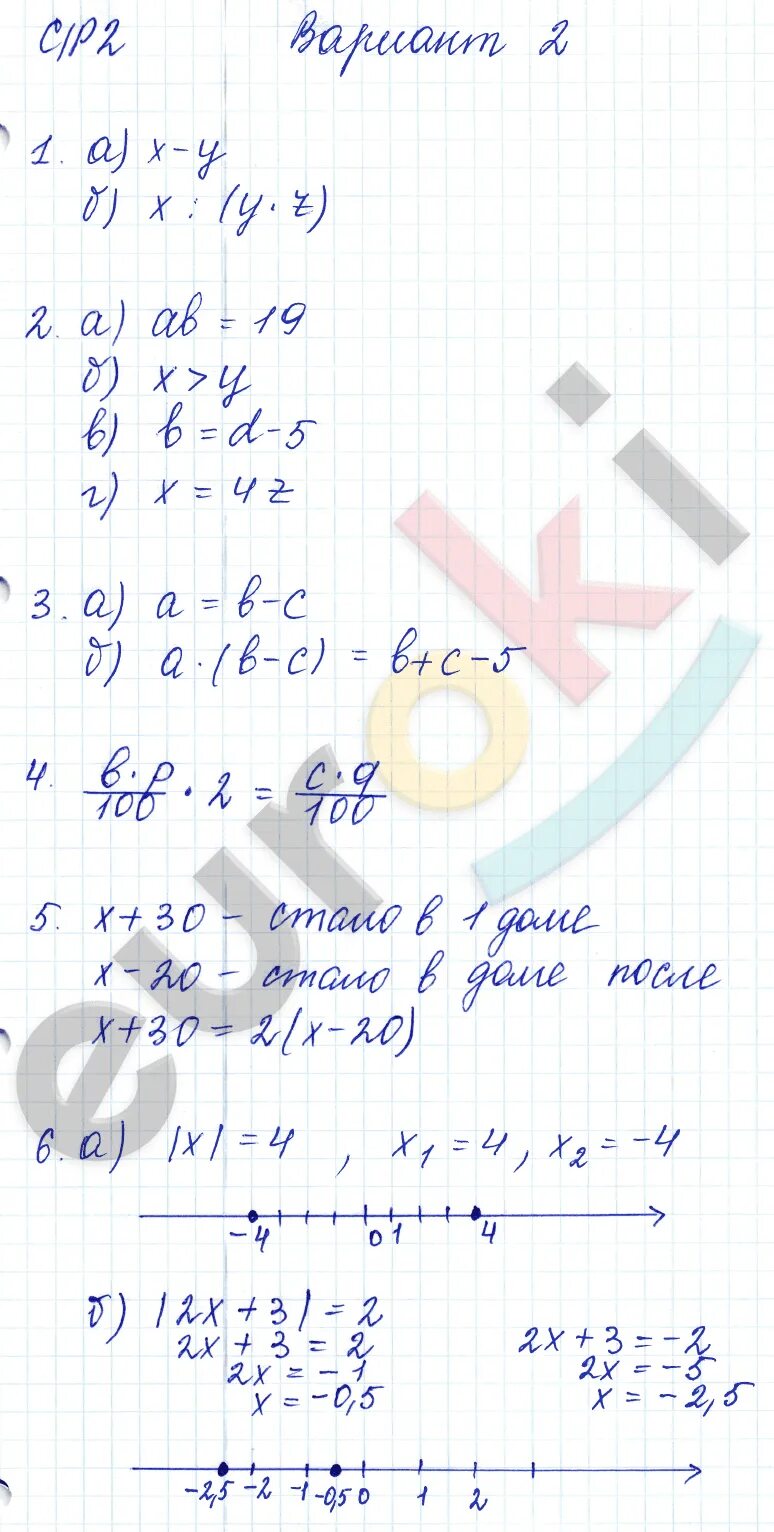 С/Р2 Вариант 2
1. а) x-y
б) x : (y·z)
2. а) ab = 19
б) x > y
в) b = d-5
г) x = 4z
3. а) a = b-c
б) a·(b-c) = b+c-5
4. b·p/100 · 2 = c·q/100
5. x+30 - стало в 1 доме
x-20 - стало в доме после
x+30 = 2(x-20)
6. а) |x| = 4 , x₁ = 4, x₂ = -4
-4 0 1 4
б) |2x+3| = 2
2x+3 = 2 2x+3 = -2
2x = -1 2x = -5
x = -0,5 x = -2,5
-2,5 -2 -1 -0,5 0 1 2
euroki